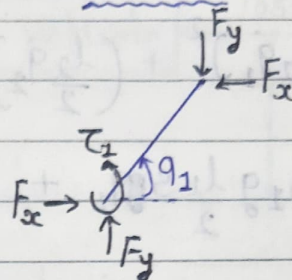 F_y
F_x
τ_1
q_1
F_x
F_y